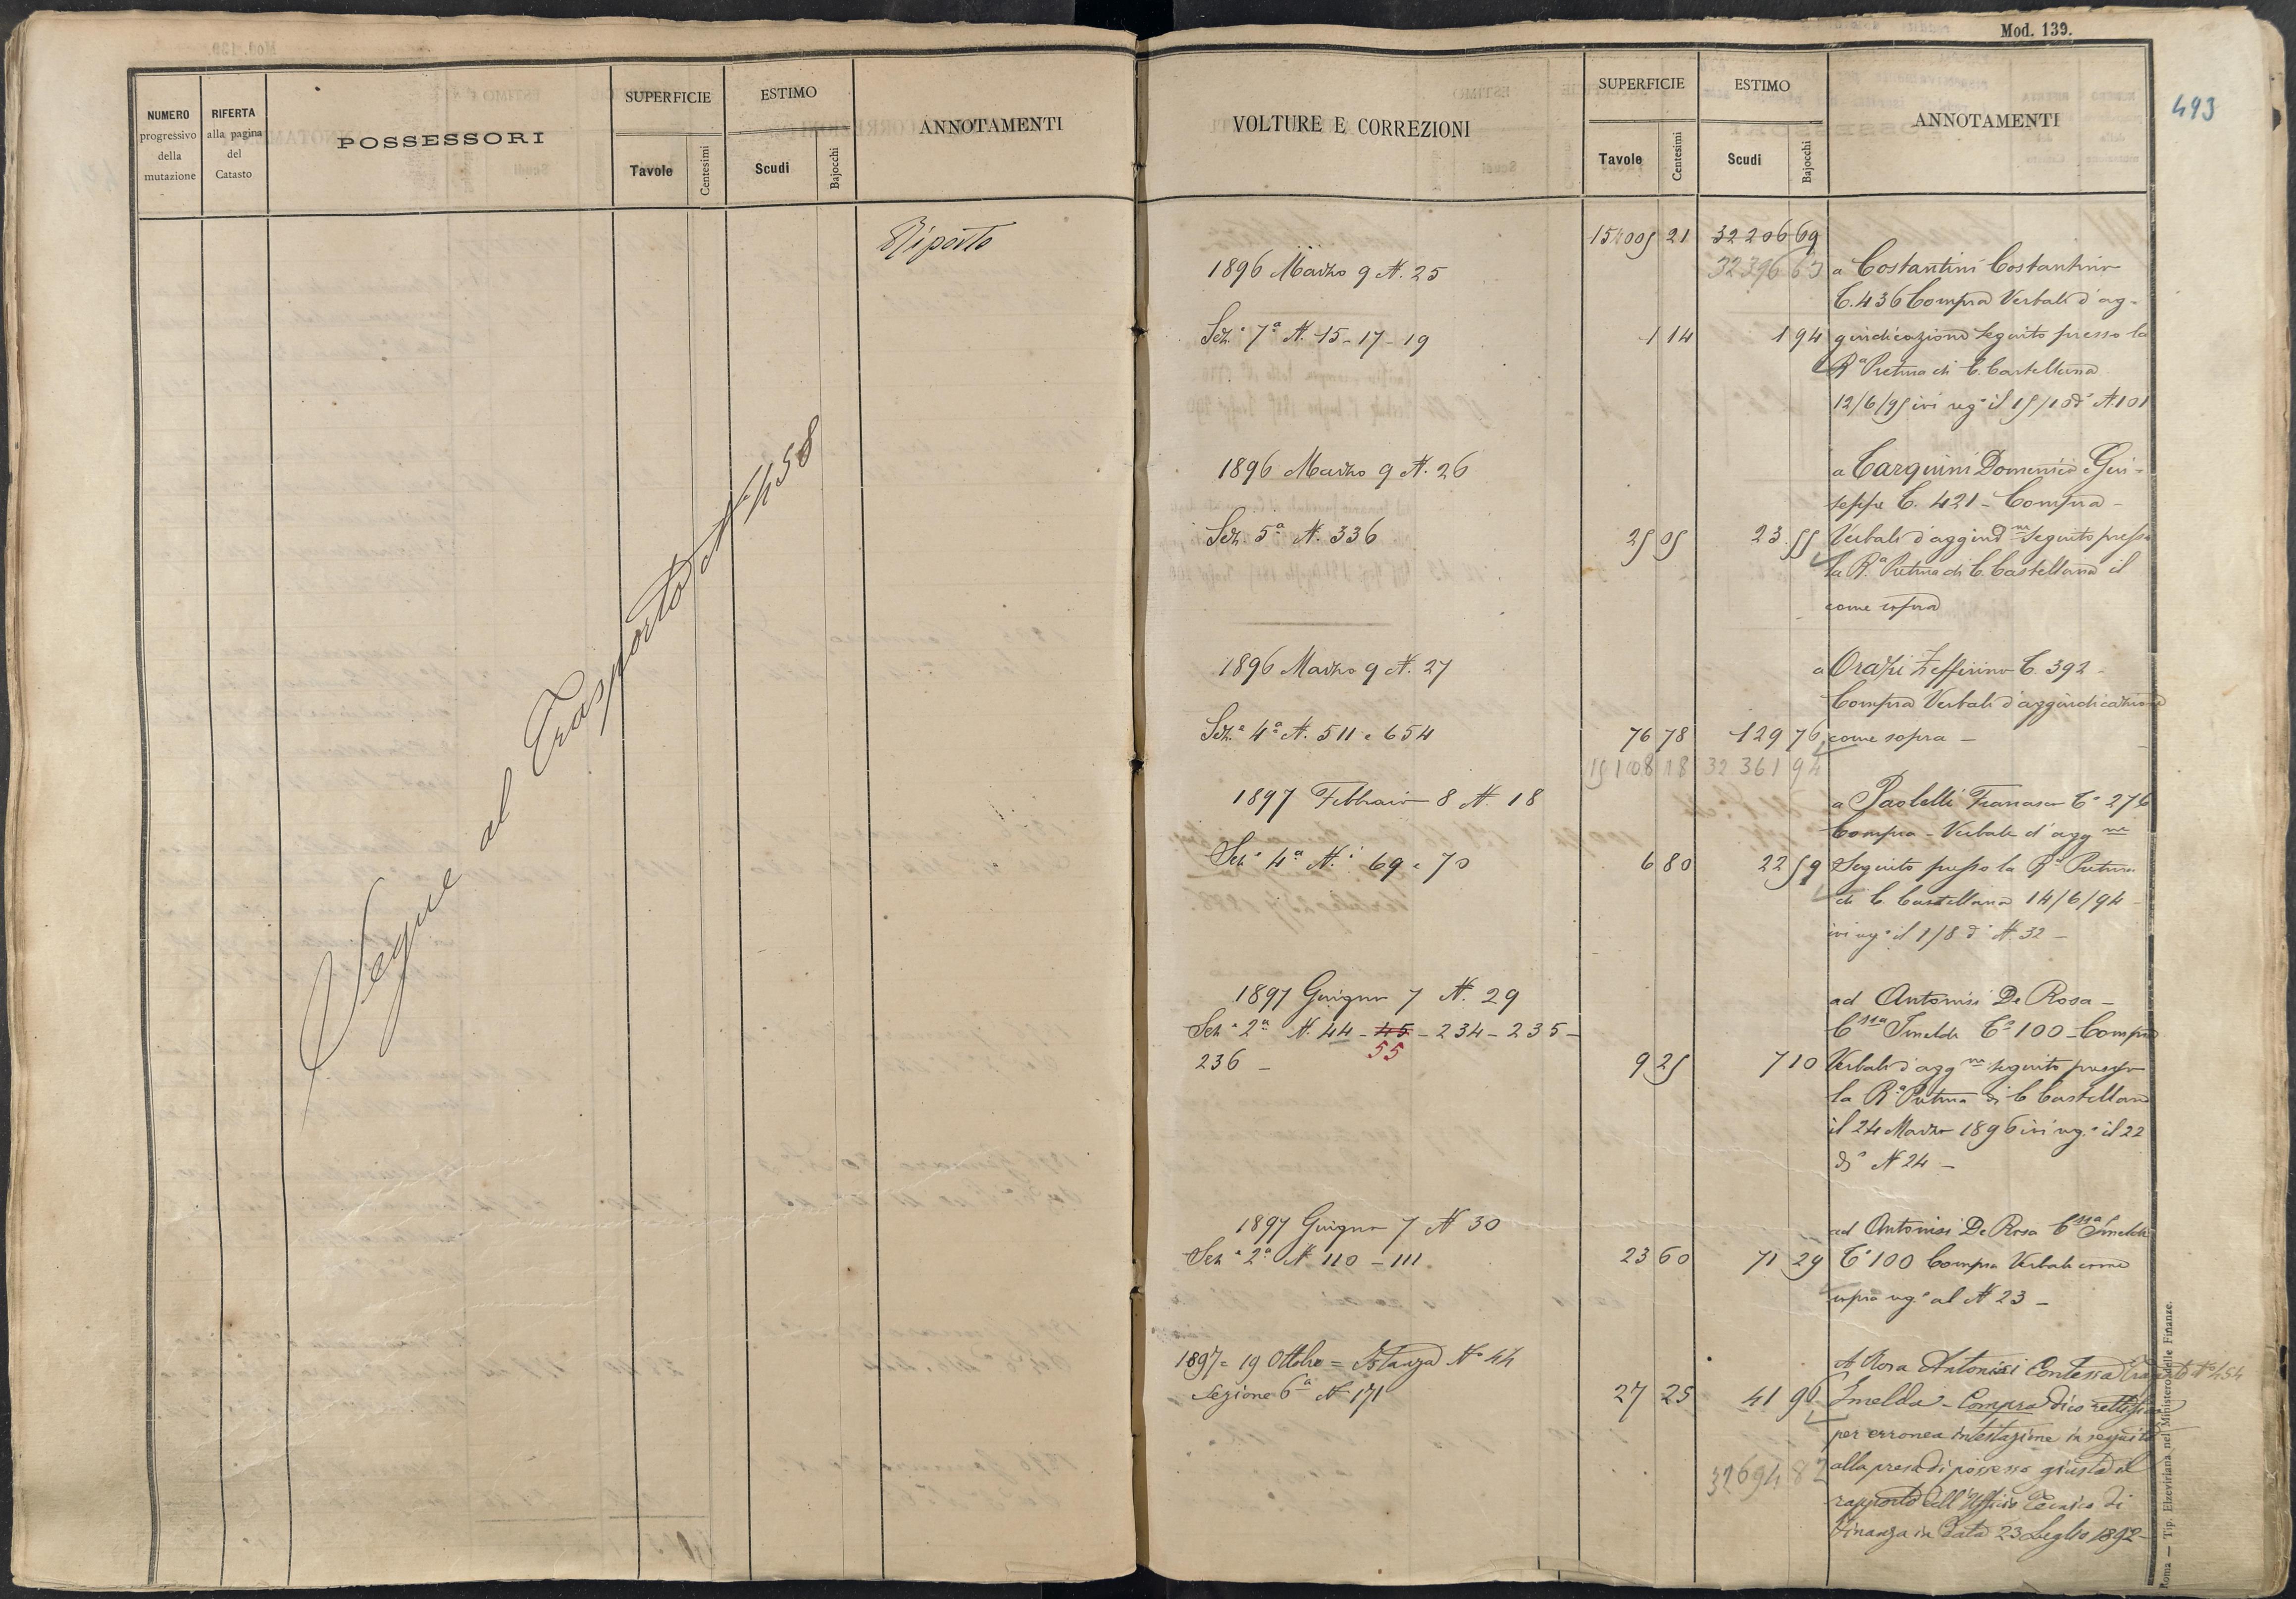 NUMERO progressivo della mutazione
RIFERTA alla pagina del Catasto
POSSESSORI
SUPERFICIE
Tavole Centesimi
ESTIMO
Scudi Bajocchi
ANNOTAMENTI
Riporto
Segue al Trasporto al N° 458
Mod. 139.
493
VOLTURE E CORREZIONI
SUPERFICIE
Tavole Centesimi
ESTIMO
Scudi Bajocchi
ANNOTAMENTI
21 32206 69
1896 Marzo 9 N. 25 32396 63 a Costantini Costantino
C. 436 Compra Verbale d'ag-
Sez.e 7a N. 15-17-19 1 14 1 94 giudicazione seguito presso la
Ra Pretura di C. Castellana
12/6/95 ivi reg.o il 15/10 do N. 101
1896 Marzo 9 N. 26 a Tarquini Domenico e Giu-
seppe C. 421 - Compra -
Sez. 5a N. 336 25 05 23 55 Verbale d'aggiudne seguito presso
la Ra Pretura di C. Castellana il
come sopra
1896 Marzo 9 N. 27 a Orazi Zeffirino C. 392 -
Compra Verbale d'aggiudicazione
Sez.e 4a N. 511 e 654 76 78 129 76 come sopra -
15108 18 32361 94
1897 Febbraio 8 N. 18 a Paolelli Francesco Co 276
Compra - Verbale d'aggne
Sez.e 4a N.i 69 e 70 6 80 22 59 Seguito presso la Ra Pretura
di C. Castellana 14/6/94 -
ivi reg.o il 1/8 do N. 32 -
1897 Giugno 7 N. 29 ad Antonisi De Rosa -
Sez.e 2a N. 44 - 45 - 234 - 235 - Cssa Imelda Co 100 - Compra
55
236 - 9 25 7 10 Verbale d'aggne seguito presso
la Ra Pretura di C Castellana
il 24 Marzo 1896 ivi reg.o il 22
do N 24 -
1897 Giugno 7 N 30 ad Antonisi De Rosa Cssa Imelda
Sez.e 2a N 110 - 111 23 60 71 29 Co 100 Compra Verbale come
sopra reg.o al N 23 -
1897 = 19 Ottobre = Istanza No 44 A Rosa Antonisi Contessa No 454
Sezione 6a N 171 27 25 41 96 Imelda - Compra dico rettifica
per erronea intestazione in seguito
32694 82 alla presa di possesso giusta il
rapporto dell'Ufficio Tecnico di
Finanza in data 23 Luglio 1892 -
Roma — Tip. Elzeviriana nel Ministero delle Finanze.